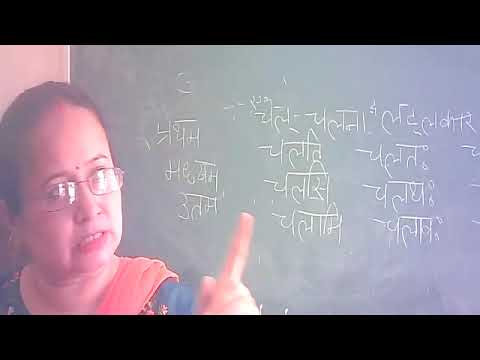 चल्-चलना लट्लकार
प्रथम चलति चलतः
मध्यम चलसि चलथः
उतम चलामि चलावः